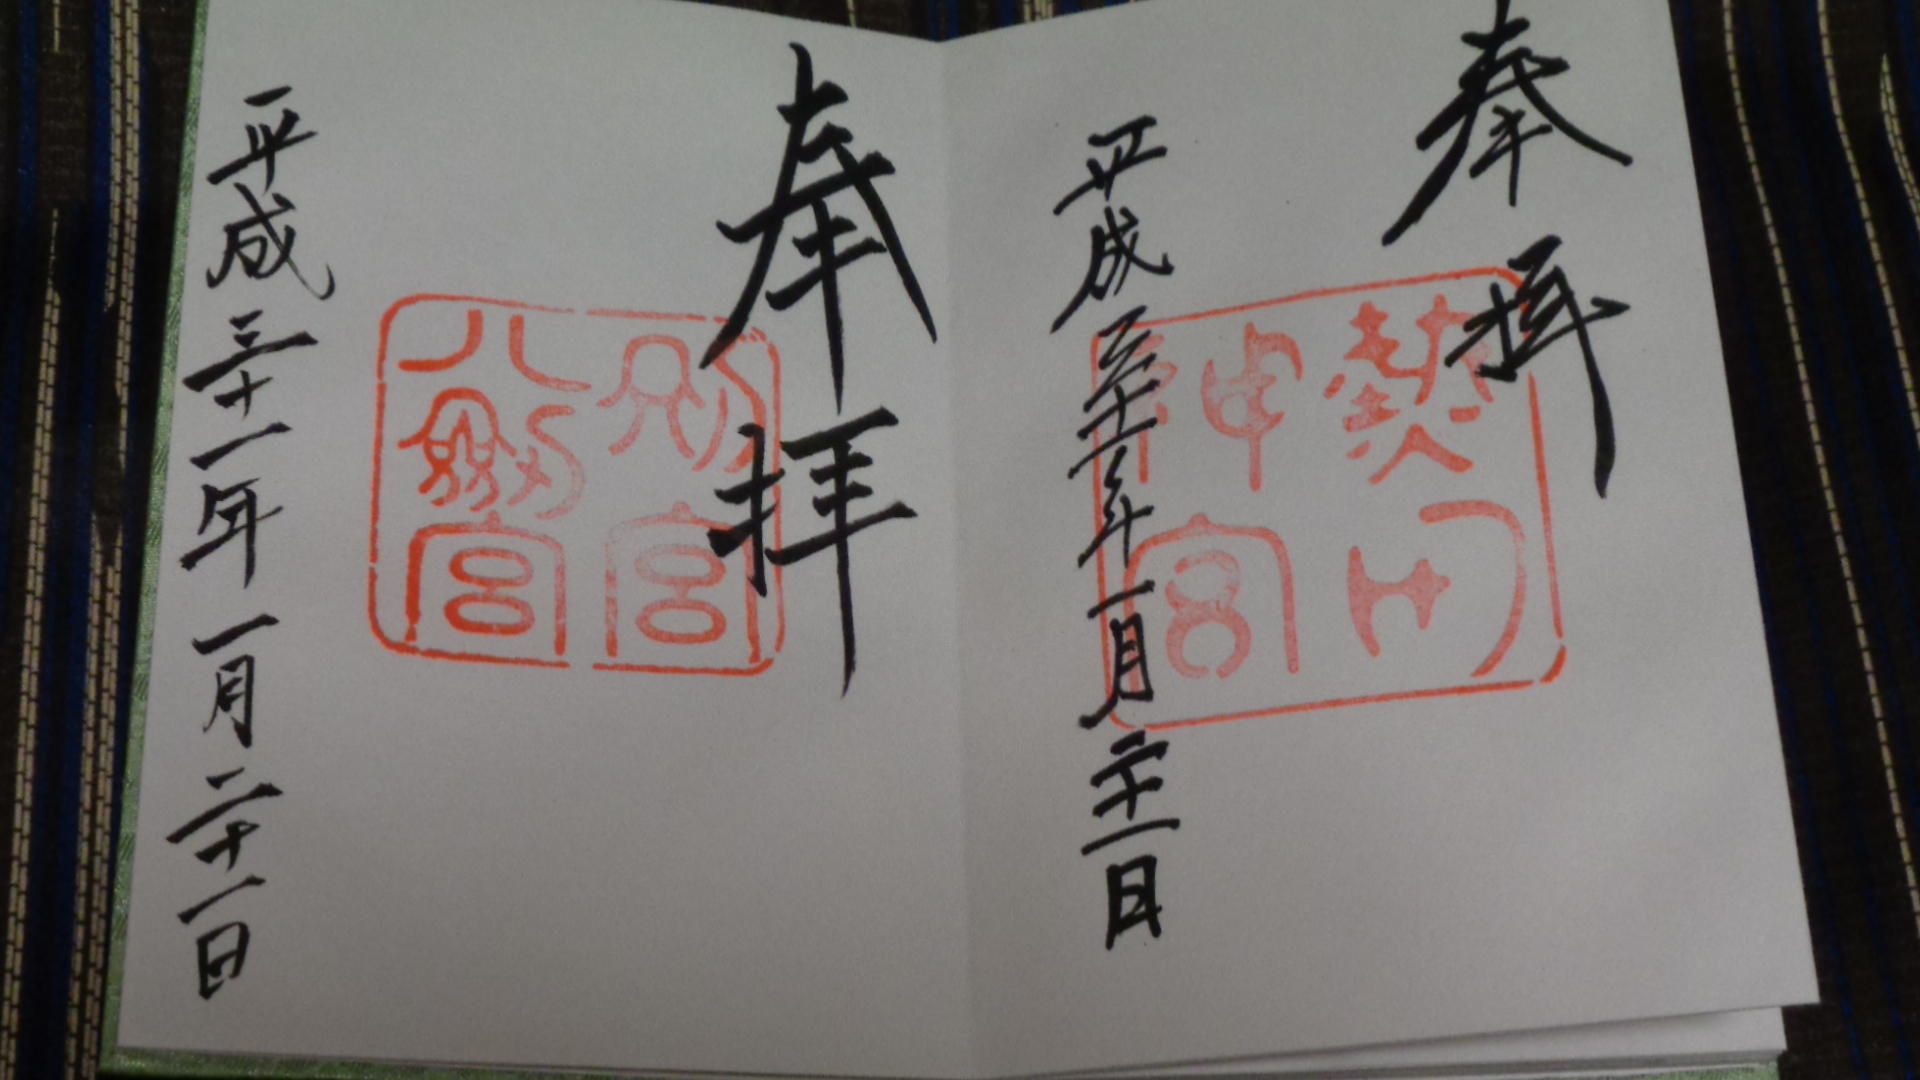 奉拝
熱田
神宮
平成三十一年一月二十一日
奉拝
別宮
八剱宮
平成三十一年一月二十一日